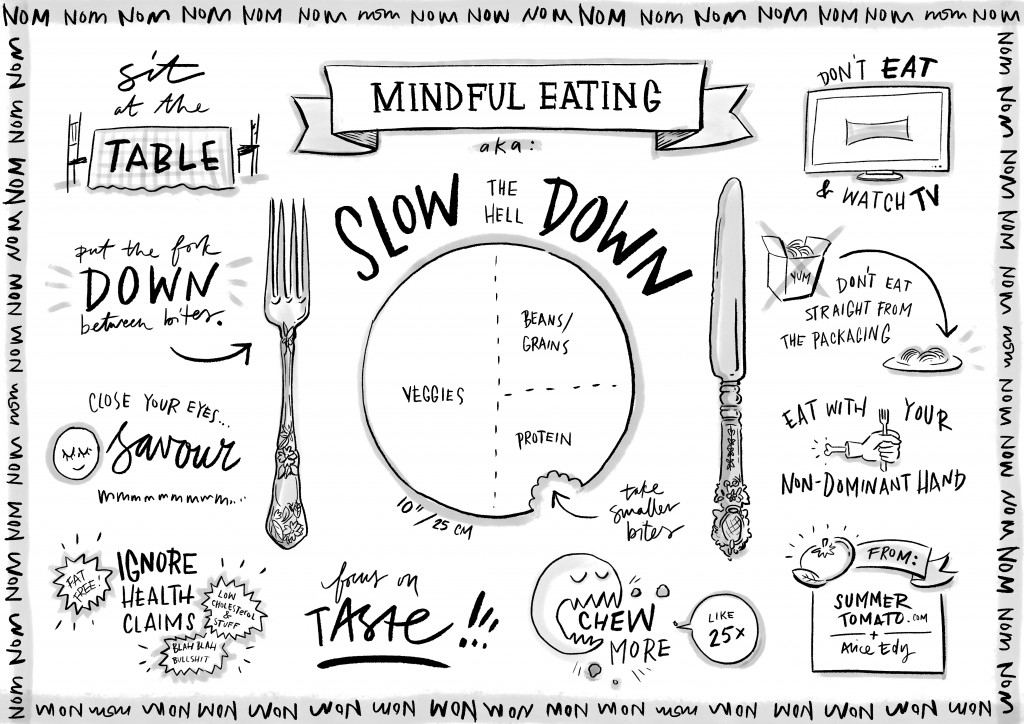 NOM NOM NOM NOM NOM NOM nom NOM NOW NOM NOM NOM NOM NOM NOM NOM NOM nom NOM
sit
at the
TABLE
MINDFUL EATING
aka:
SLOW THE HELL DOWN
DON'T EAT
& WATCH TV
put the fork
DOWN
between bites.
VEGGIES
BEANS/
GRAINS
PROTEIN
10"/25 CM
take
smaller
bites
YUM
DON'T EAT
STRAIGHT FROM
THE PACKAGING
CLOSE YOUR EYES...
savour
mmmmmmmmm...
EAT WITH YOUR
NON-DOMINANT HAND
IGNORE
HEALTH
CLAIMS
FAT
FREE!
LOW
CHOLESTEROL
&
STUFF
BLAH BLAH
BULLSHIT
focus on
TASTE!!!
CHEW
MORE
LIKE
25x
FROM:
SUMMER
TOMATO.COM
+
Alice Edy